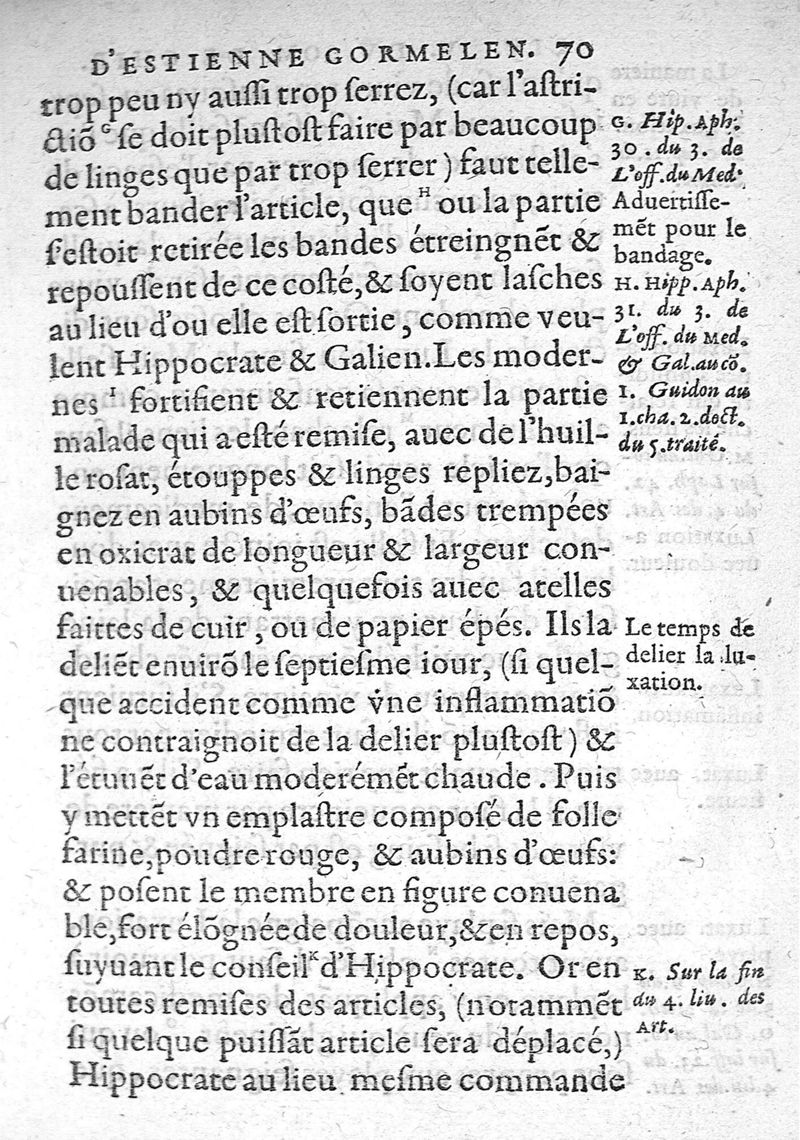 D'ESTIENNE GORMELEN. 70
trop peu ny auſſi trop ſerrez, (car l'aſtri-
ctiõ G ſe doit pluſtoſt faire par beaucoup
de linges que par trop ſerrer) faut telle-
ment bander l'article, que H ou la partie
s'eſtoit retirée les bandes étreingnẽt &
repouſſent de ce coſté,& ſoyent laſches
au lieu d'ou elle eſt ſortie, comme veu-
lent Hippocrate & Galien. Les moder-
nes I fortifient & retiennent la partie
malade qui a eſté remiſe, auec de l'huil-
le roſat, étouppes & linges repliez, bai-
gnez en aubins d'œufs, bãdes trempées
en oxicrat de longueur & largeur con-
uenables, & quelquefois auec atelles
faittes de cuir, ou de papier épés. Ils la
deliẽt enuirõ le ſeptieſme iour, (ſi quel-
que accident comme vne inflammatiõ
ne contraignoit de la delier pluſtoſt) &
l'étuuẽt d'eau moderémẽt chaude. Puis
y mettẽt vn emplaſtre compoſé de folle
farine, poudre rouge, & aubins d'œufs:
& poſent le membre en figure conuena
ble, fort élõgnée de douleur,& en repos,
ſuyuant le conſeil K d'Hippocrate. Or en
toutes remiſes des articles, (notammẽt
ſi quelque puiſſãt article ſera déplacé,)
Hippocrate au lieu meſme commande
G. Hip. Aph.
30. du 3. de
L'off. du Med.
Aduertiſſe-
mẽt pour le
bandage.
H. Hipp. Aph.
31. du 3. de
L'off. du Med.
& Gal. au cõ.
I. Guidon au
1. cha. 2. doct.
du 5. traité.
Le temps de
delier la lu-
xation.
K. Sur la fin
du 4. liu. des
Art.